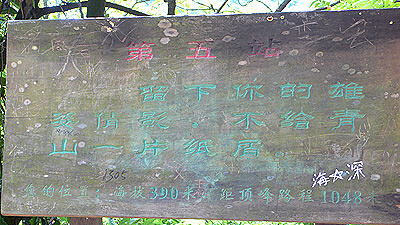 第五站
留下你的雄
姿倩影，不给青
山一片纸屑
1305
您的位置：海拔390米，距顶峰路程1048米